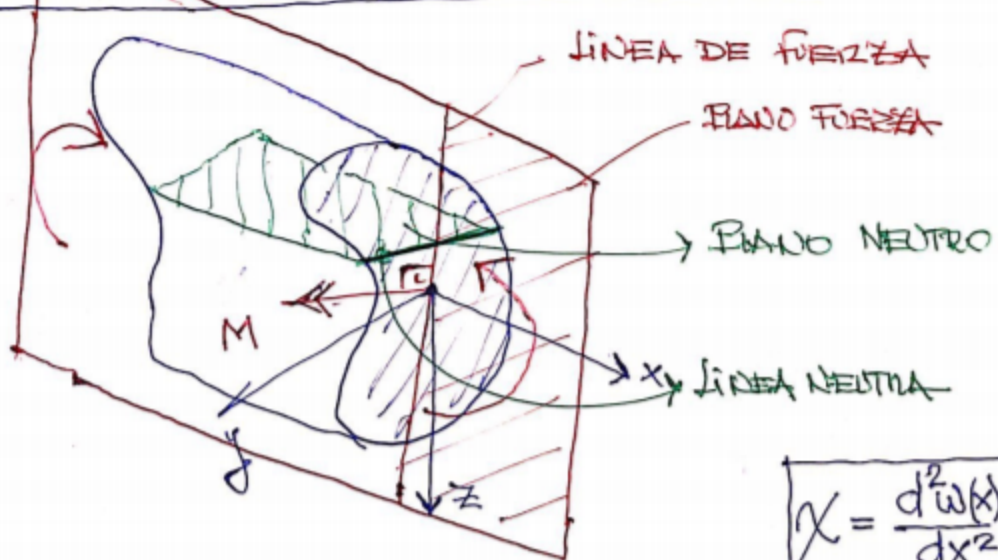 LINEA DE FUERZA
PLANO FUERZA
PLANO NEUTRO
M
x
LINEA NEUTRA
y
z
χ = d²ω(x)/dx²